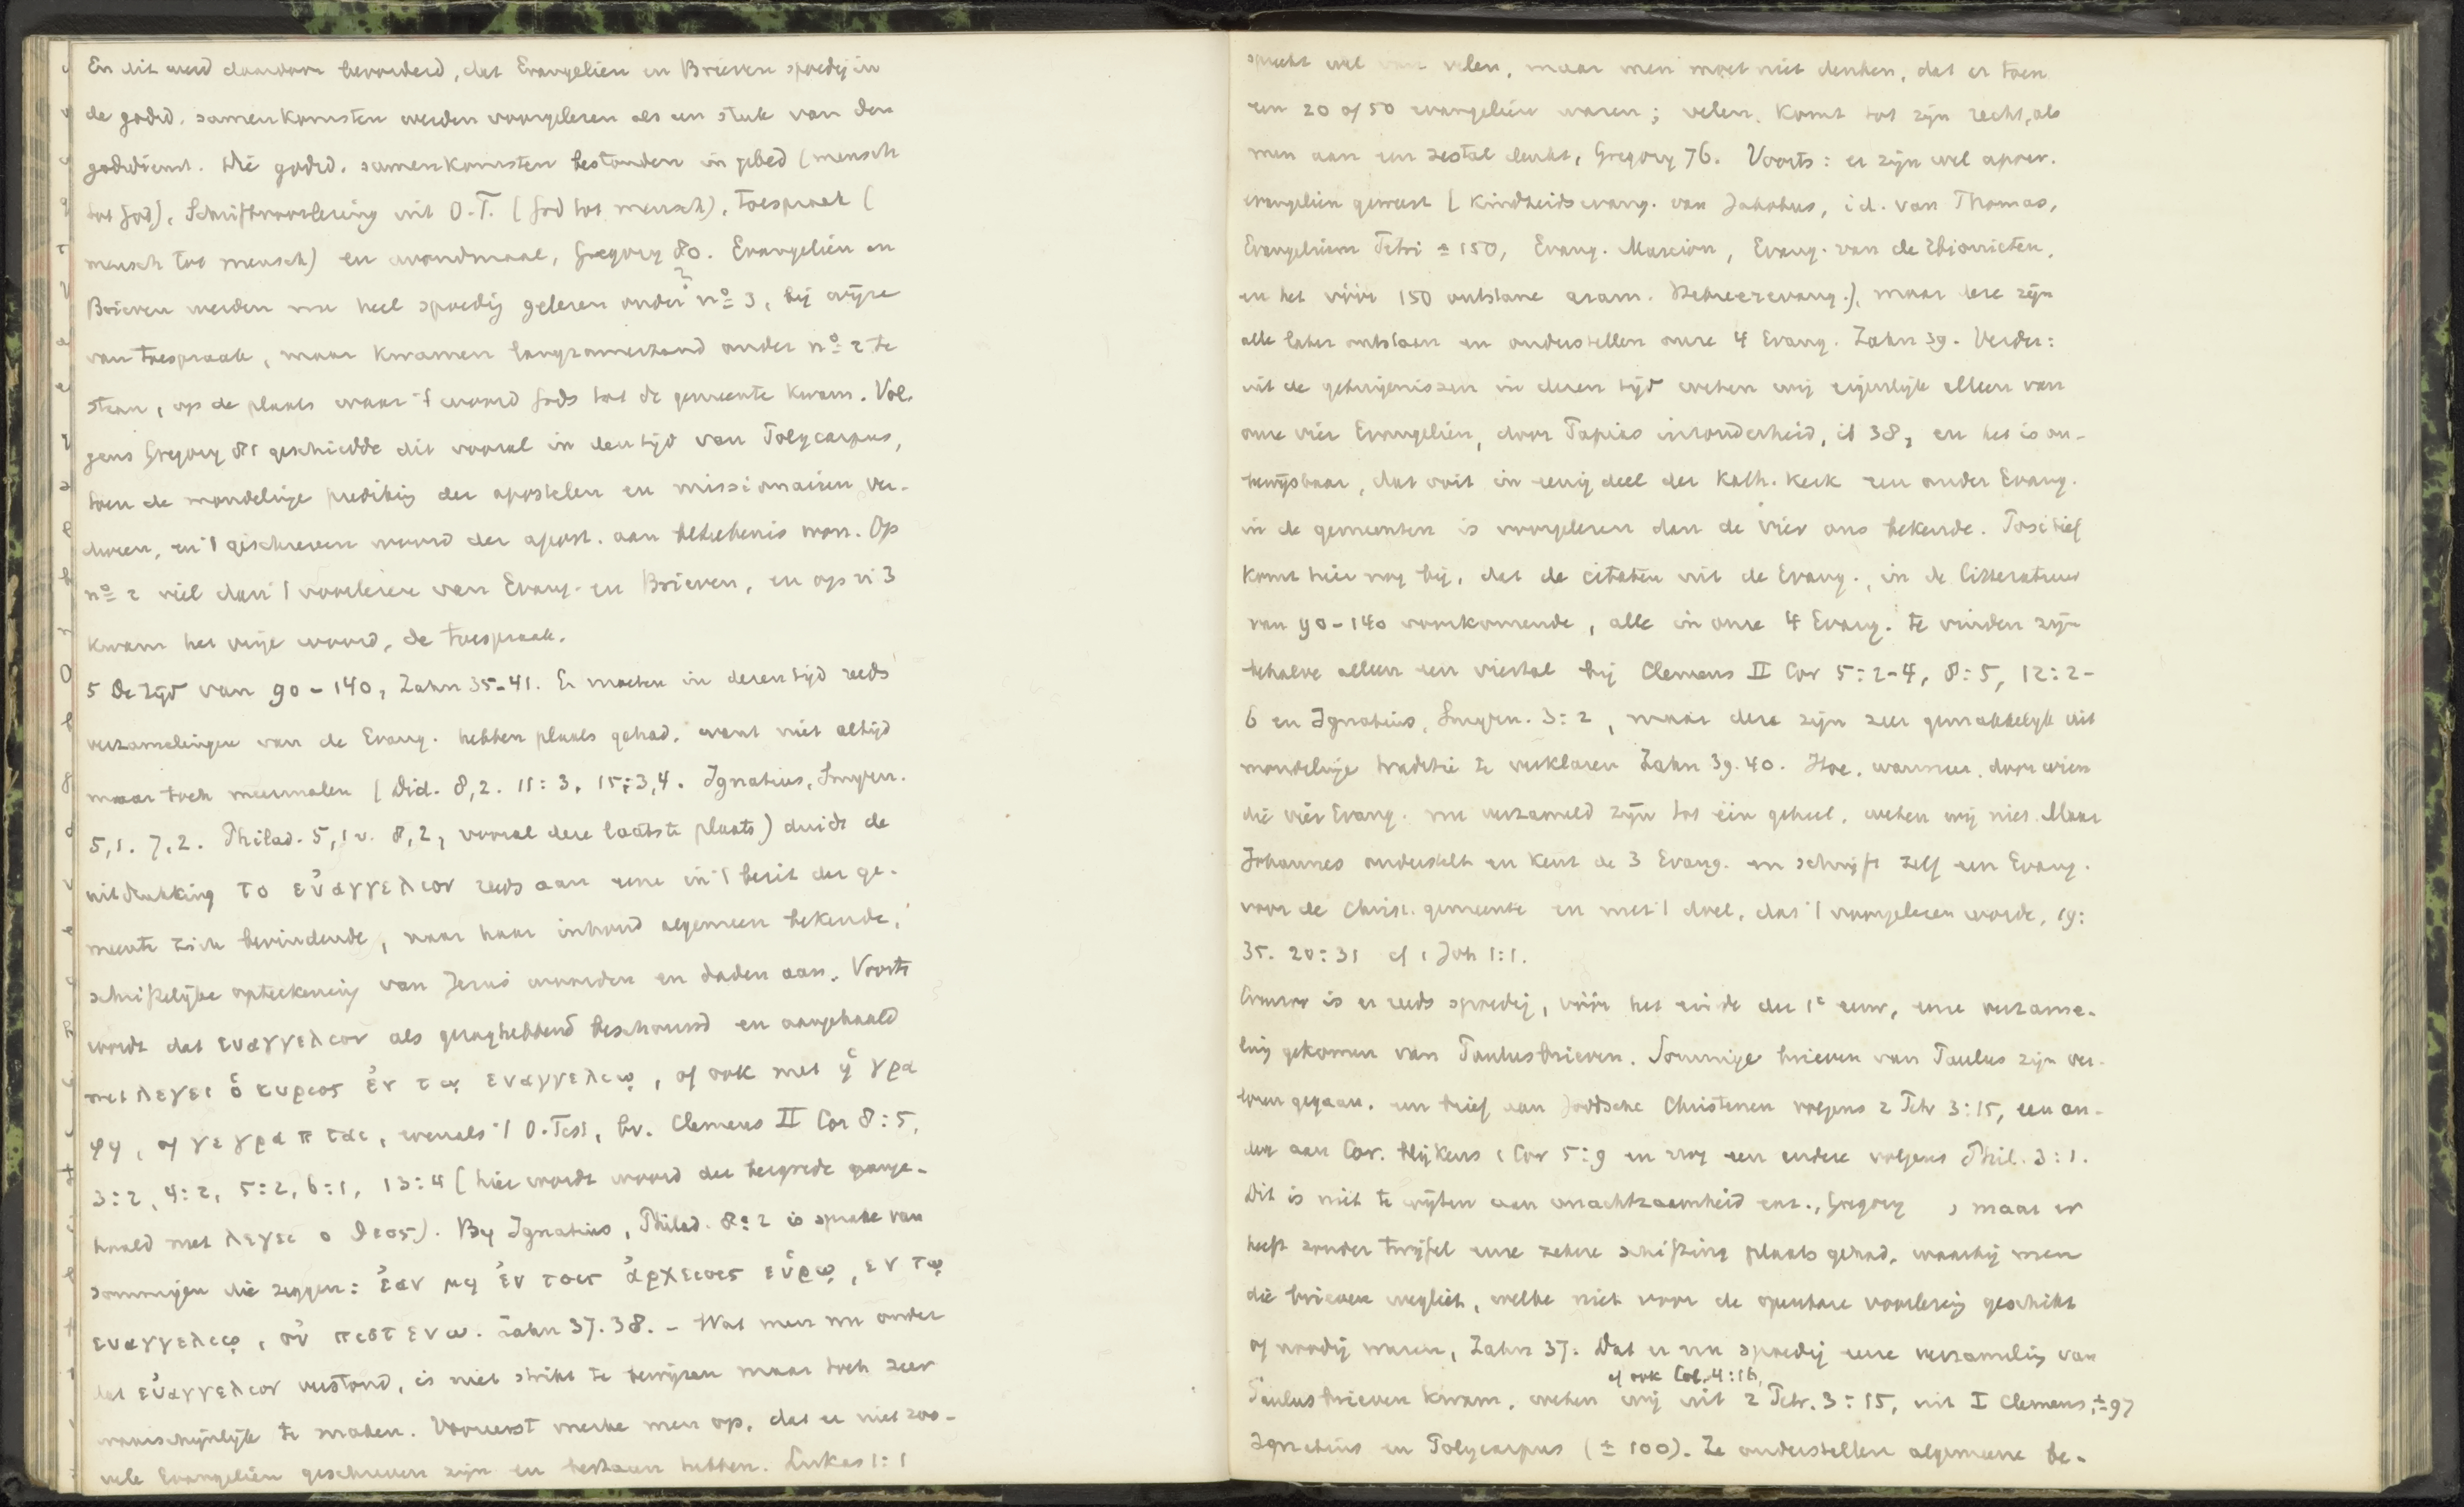 En dit werd daardoor bevorderd, dat Evangeliën en Brieven spoedig in
de godsd. samenkomsten werden voorgelezen als een stuk van den
godsdienst. Die godsd. samenkomsten bestonden in gebed (mensch
tot God), Schriftvoorlezing uit O.T. (God tot mensch), toespraak (
mensch tot mensch) en avondmaal, Gregory 80. Evangeliën en
Brieven werden nu heel spoedig gelezen onder nº 3, bij wijze
van toespraak, maar kwamen langzamerhand onder nº 2 te
staan, op de plaats waar 't woord Gods tot de gemeente kwam. Vol-
gens Gregory 81 geschiedde dit vooral in den tijd van Polycarpus,
toen de mondelinge prediking der apostelen en missionairen ver-
dween, en 't geschreven woord der apost. aan beteekenis won. Op
nº 2 viel dan 't voorlezen van Evang. en Brieven, en op n 3
kwam het vrije woord, de toespraak.
5 De tijd van 90-140, Zahn 35-41. Er moeten in dezen tijd reeds
verzamelingen van de Evang. hebben plaats gehad, want niet altijd
maar toch meermalen (Did. 8,2. 11:3. 15:3,4. Ignatius, Smyrn.
5,1. 7,2. Philad. 5,1v. 8,2, vooral deze laatste plaats) duidt de
uitdrukking το εὐαγγελιον reeds aan eene in 't bezit der ge-
meente zich bevindende, naar haar inhoud algemeen bekende,
schriftelijke opteekening van Jezus' woorden en daden aan. Voorts
wordt dat ευαγγελιον als gezaghebbend beschouwd en aangehaald
met λεγει ὁ κυριος ἐν τῳ ευαγγελιῳ, of ook met ἡ γρα
φη, of γεγραπται, evenals 't O.Test, bv. Clemens II Cor 8:5,
3:2, 4:2, 5:2, 6:1, 13:4 (hier wordt woord der bergrede aange-
haald met λεγει ο θεος). By Ignatius, Philad. 8:2 is sprake van
sommigen die zeggen: ἐαν μη ἐν τοις ἀρχειοις εὑρω, εν τῳ
ευαγγελιῳ, οὐ πιστευω. Zahn 37.38. - Wat men nu onder
dat εὐαγγελιον verstond, is niet strikt te bewijzen maar toch zeer
waarschijnlijk te maken. Vooreerst merke men op, dat er niet zoo-
vele Evangeliën geschreven zijn en bestaan hebben. Lukas 1:1
spreekt wel van velen, maar men moet niet denken, dat er toen
een 20 of 50 evangeliën waren; velen komt tot zijn recht, als
men aan een zestal denkt, Gregory 76. Voorts: er zijn wel apocr.
evangeliën geweest (Kindheidsevang. van Jakobus, id. van Thomas,
Evangelium Petri ± 150, Evang. Marcion, Evang. van de Ebionieten,
en het vóór 150 ontstane aram. Hebreërevang.), maar deze zijn
alle later ontstaan en onderstellen onze 4 Evang. Zahn 39. Verder:
uit de getuigenissen in dezen tijd weten wij eigenlijk alleen van
onze vier Evangeliën, door Papias inzonderheid, ib 38, en het is on-
bewijsbaar, dat ooit in eenig deel der Kath. Kerk een ander Evang.
in de gemeenten is voorgelezen dan de vier ons bekende. Positief
komt hier nog bij, dat de citaten uit de Evang., in de litteratuur
van 90-140 voorkomende, alle in onze 4 Evang. te vinden zijn
behalve alleen een viertal bij Clemens II Cor 5:2-4, 8:5, 12:2-
6 en Ignatius, Smyrn. 3:2, maar deze zijn zeer gemakkelijk uit
mondelinge traditie te verklaren Zahn 39.40. Hoe, wanneer, door wien
die vier Evang. nu verzameld zijn tot één geheel, weten wij niet. Maar
Johannes onderstelt en kent de 3 Evang. en schrijft zelf een Evang.
voor de Christ. gemeente en met 't doel, dat 't voorgelezen worde, 19:
35. 20:31 cf 1 Joh 1:1.
Evenzoo is er reeds spoedig, vóór het einde der 1e eeuw, eene verzame-
ling gekomen van Paulusbrieven. Sommige brieven van Paulus zijn ver-
loren gegaan, een brief aan Joodsche Christenen volgens 2 Petr 3:15, een an-
der aan Cor. blijkens 1 Cor 5:9 en nog een andere volgens Phil. 3:1.
Dit is niet te wijten aan onachtzaamheid enz., Gregory , maar er
heeft zonder twijfel eene zekere schifting plaats gehad, waarbij men
die brieven wegliet, welke niet voor de openbare voorlezing geschikt
of noodig waren, Zahn 37. Dat er nu spoedig eene verzameling van
cf ook Col. 4:16,
Paulusbrieven kwam, weten wij uit 2 Petr. 3:15, uit I Clemens, ±97
Ignatius en Polycarpus (± 100). Ze onderstellen algemeene be-